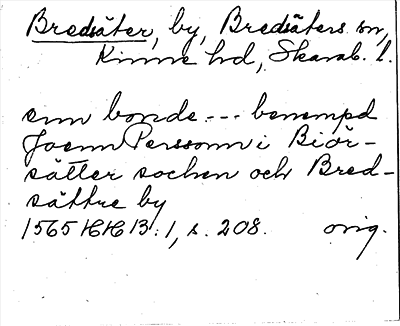 Bredsäter, by, Bredsäters sn,
Kinne hd, Skarab. l.
enn bonde --- benempd
Joenn Perssonn i Biör-
sätter sochen och Bred-
sättre by
1565 HH B:1, s. 208. orig.